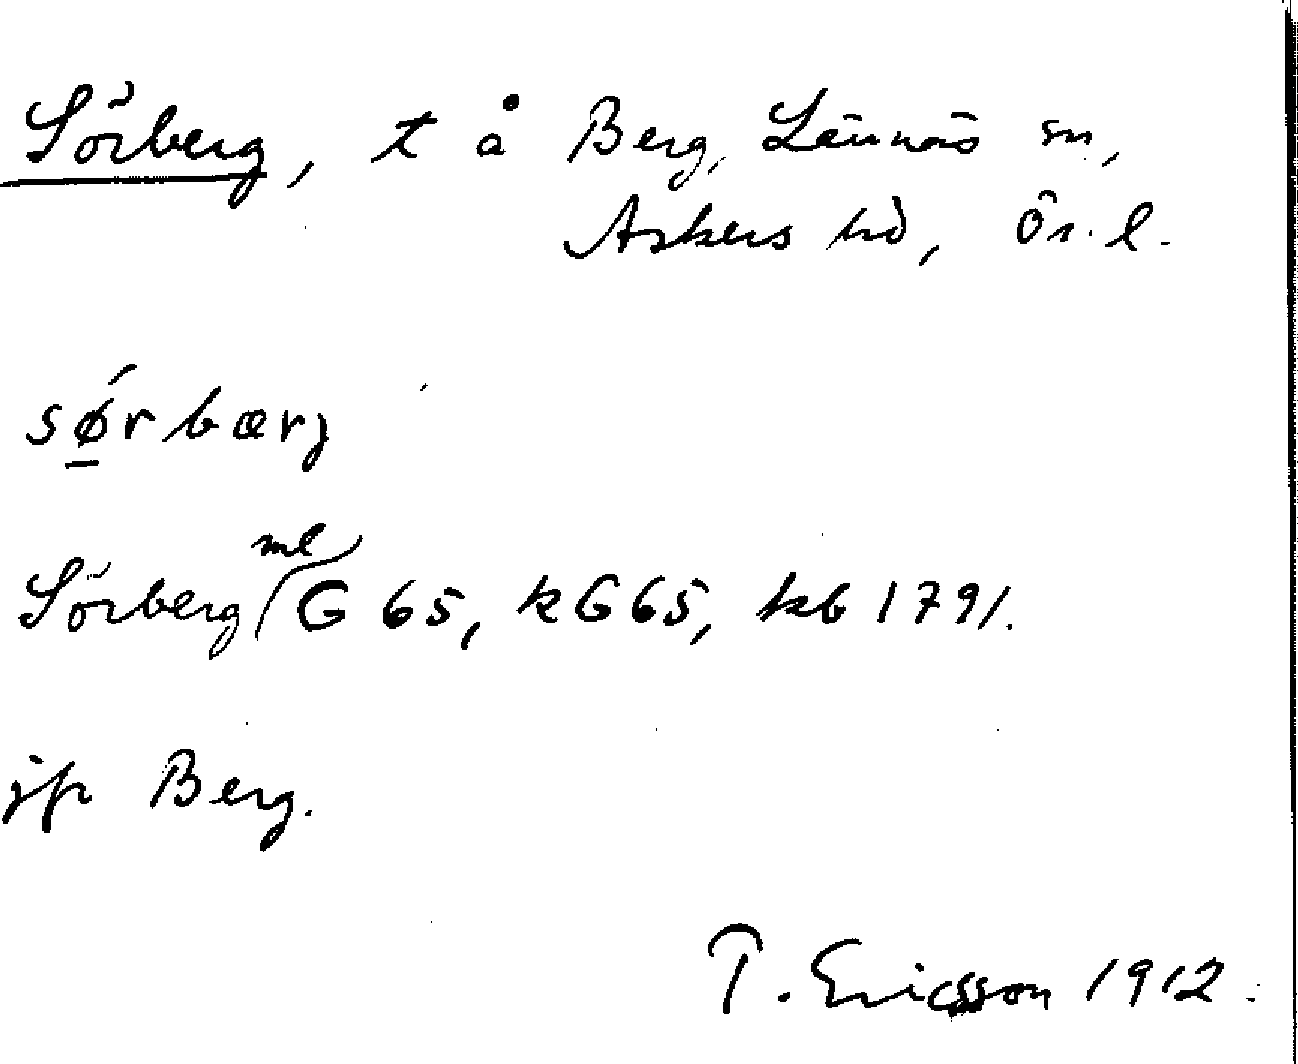 Sörberg, t å Berg, Lännäs sn,
Askers hd, Ör. l.
sǿ̲rbærj
Sörberg ml G 65, kG65, kb 1791.
jfr Berg.
T. Ericsson 1912.